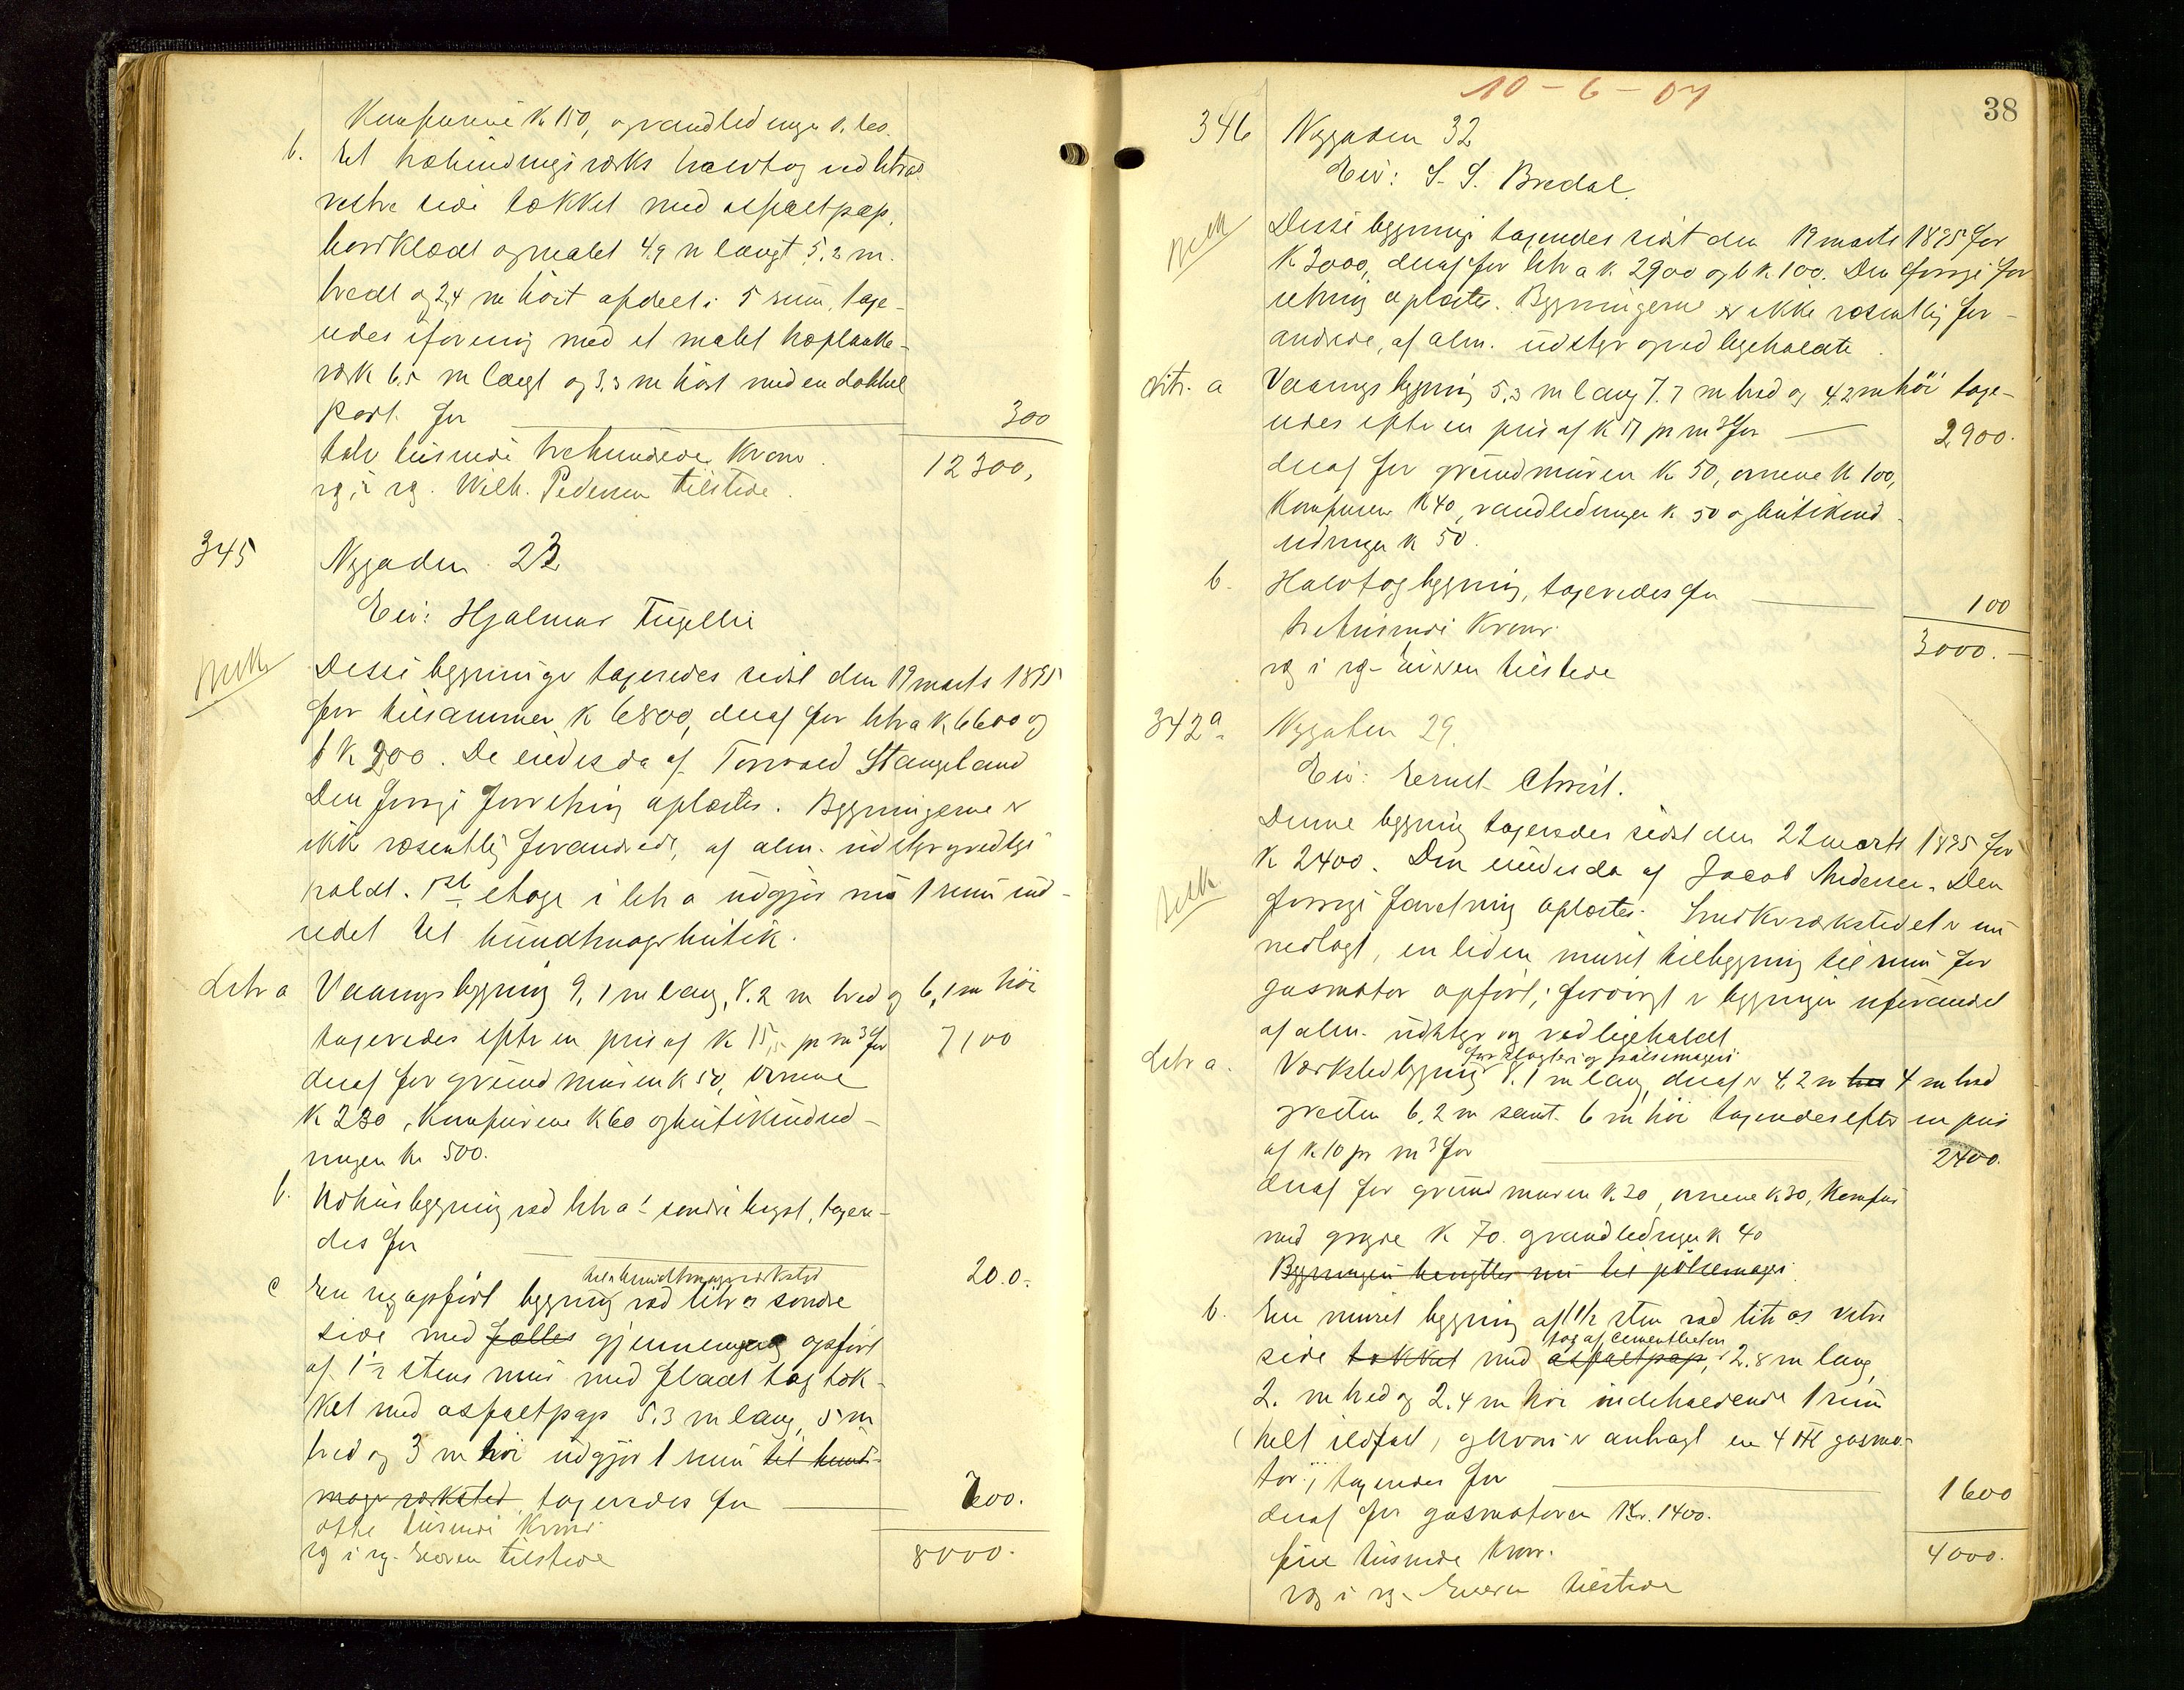 Komfurene K 150, og vandledningen K.
b. Et træbindingsværks halvtag ved litra a's
vestre side tækket med asfaltpap,
bordklædt og malet 4,9 m langt 5,2 m.
bredt og 2,4 m høit afdelt i 5 rum, taxe-
redes iforening med et malet træplanke-
værk 6,5 m langt og 3,3 m høit med en dobbel
port. for 300
tolv tusinde trehundrede Kroner. 12300,
rg. i rg. Wilh. Pedersen tilstede.
345 Nygaden 23
Eier: Hjalmar
Disse bygninger taxeredes sidst den 19 marts 1895
for tilsammen K 6800, deraf for litr a K 6600 og
b K 200. De eiedes da af Torvald Stangeland
Den forrige forretning oplæstes. Bygningerne er
ikke væsentlig forandrede, af alm. udstyr og vedlige
holdt. 1ste etage i litr a udgjør nu 1 rum ind-
redet til bundtmagerbutik.
Litr a Vaaningsbygning 9,1 m lang, 8.2 m bred og 6,1 m høi
taxeredes efter en pris af K 15,5 pr m³ for 7100
deraf for grundmuren K 50, ovnene
K 230, Komfurene K 60 og butikindred-
ningen Kr 500.
b. Udhusbygning ved litr a's søndre, taxere-
des for 200.
til bundtmagerværksted
c En ny opført bygning ved litr a's søndre
side med fælles gjennemgang opført
af 1½ stens mur med fladt tag tæk-
ket med asfaltpap 5.3 m lang, 5 m
bred og 3 m høi udgjør 1 rum til bundt-
mager værksted, taxeredes for 700.
otte tusinde Kroner
rg i rg. Eieren tilstede 8000.
10-6-04
38
346 Nygaden 32
Eier: S. S. Bredal.
Disse bygninger taxeredes sidst den 19 marts 1895 for
K 3000, deraf for litr a K. 2900 og b K 100. Den forrige for
retning oplæstes. Bygningerne er ikke væsentlig for-
andrede, af alm. udstyr og vedligeholdte.
Litr. a Vaaningsbygning 5.3 m lang 7.7 m bred og 4,2 m høi taxe-
redes efter en pris af K 17 pr m³ for 2900.
deraf for grundmuren K 50, ovnene K 100,
Komfuren K 40, vandledningen K 50 og butikind-
redningen K 50.
b. Halvtagbygning, taxeredes for 100
tretusinde Kroner. 3000.-
rg i rg- Eieren tilstede
342a. Nygaden 29.
Eier: Ernst Christ.
Denne bygning taxeredes sidst den 22 marts 1895 for
K 2400. Den eiedes da af Jacob Andersen. Den
forrige forretning oplæstes. Smedværkstedet er nu
nedlagt, en liden muret tilbygning til rum for
gasmotor opført; forøvrigt er bygningen uforandret
af alm. udstyr og vedligeholdt
for slagteri og pølsemageri
Litr a. Værkstedbygning 8.1 m lang, deraf er 4.2 m bre 4 m bred
og resten 6,2 m samt 6 m høi taxeredes efter en pris
af K 10 pr m³ for 2400.
deraf for grundmuren K. 20, ovnene K 30, Komfur
med gryde K 70. og vandledningen K 40
Bygningen benyttes nu til pølsemageri.
b. En muret bygning af 1½ sten ved litr a's vestre
tag af cementbeton
side tækket med asfaltpap, 2.8 m lang,
2. m bred og 2.4 m høi indeholdende 1 rum
(helt ildfast) og hvori er anbragt en 4 HK gasmo-
tor, taxeredes for 1600
deraf for gasmotoren Kr. 1400.
fire tusinde Kroner. 4000.
rg i rg. Eieren tilstede